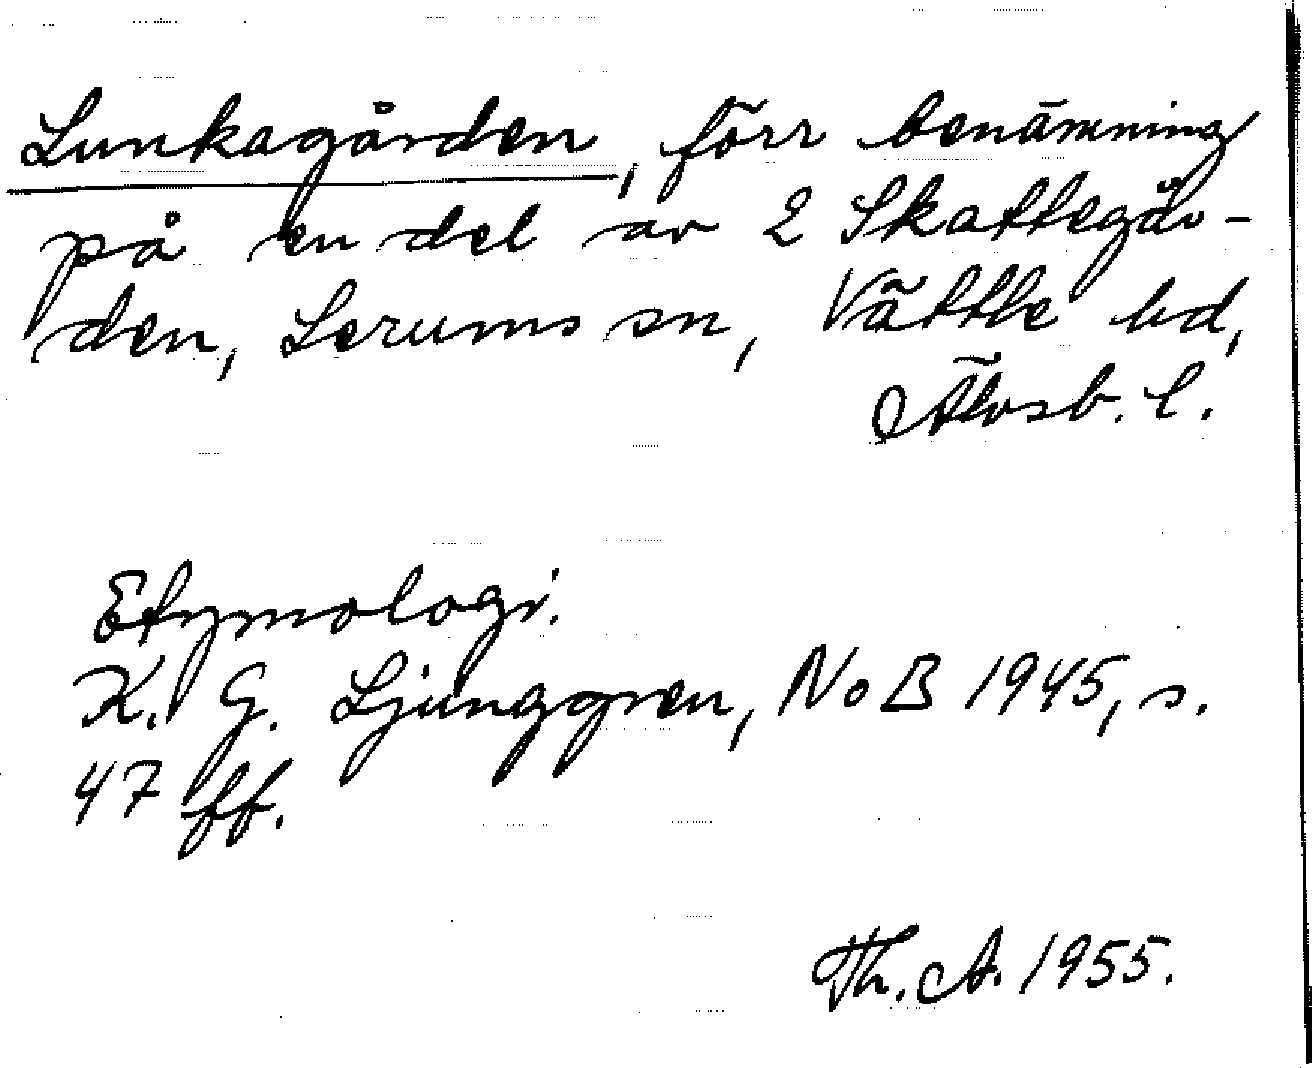 Lunkagården, förr benämning
på en del av 2 Skattegår-
den, Lerums sn, Vättle hd,
Älvsb. l.
Etymologi.
K. G. Ljunggren, NoB 1945, s.
47 ff.
Th. A. 1955.